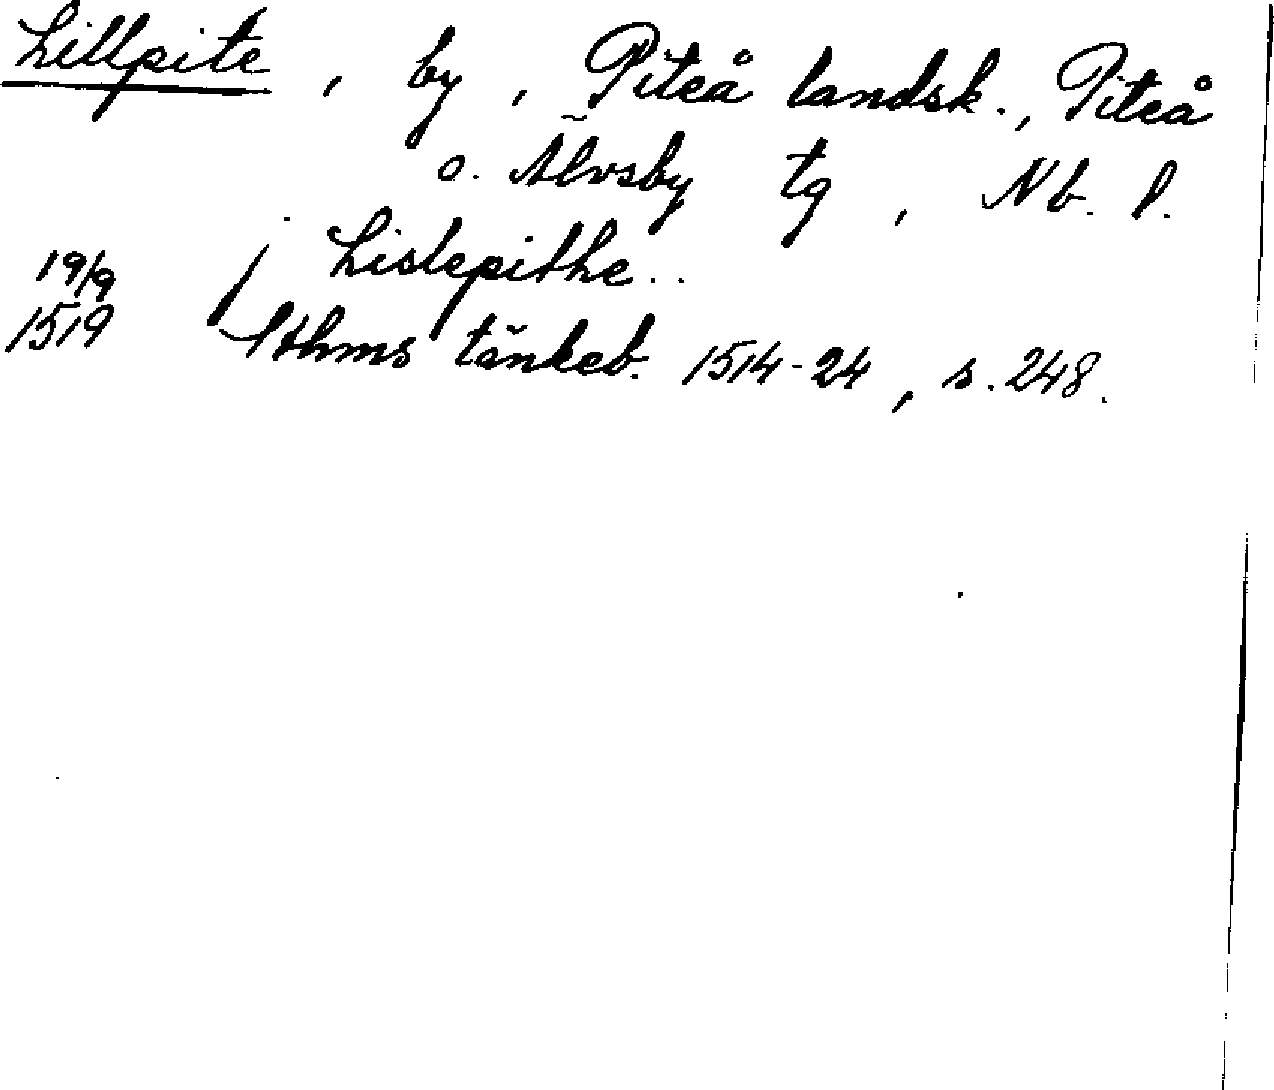 Lillpite, by, Piteå landsk., Piteå
o. Älvsby tg, Nb. l.
19/9 j Lislepithe..
1519 Sthms tänkeb. 1514-24, s. 248.